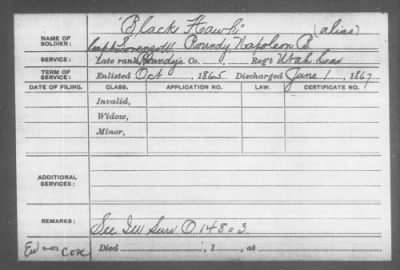 "Black Hawk" (alias)
NAME OF SOLDIER:
Capt Lorenzo W. Roundy Napoleon B
SERVICE: Late rank, Roundy's Co., Reg't Utah
TERM OF SERVICE: Enlisted Oct, 1865 Discharged June 1, 1867
DATE OF FILING. CLASS. APPLICATION NO. LAW. CERTIFICATE NO.
Invalid,
Widow,
Minor,
ADDITIONAL SERVICES:
REMARKS: See Ind Surv O 14803
Died , 1 , at